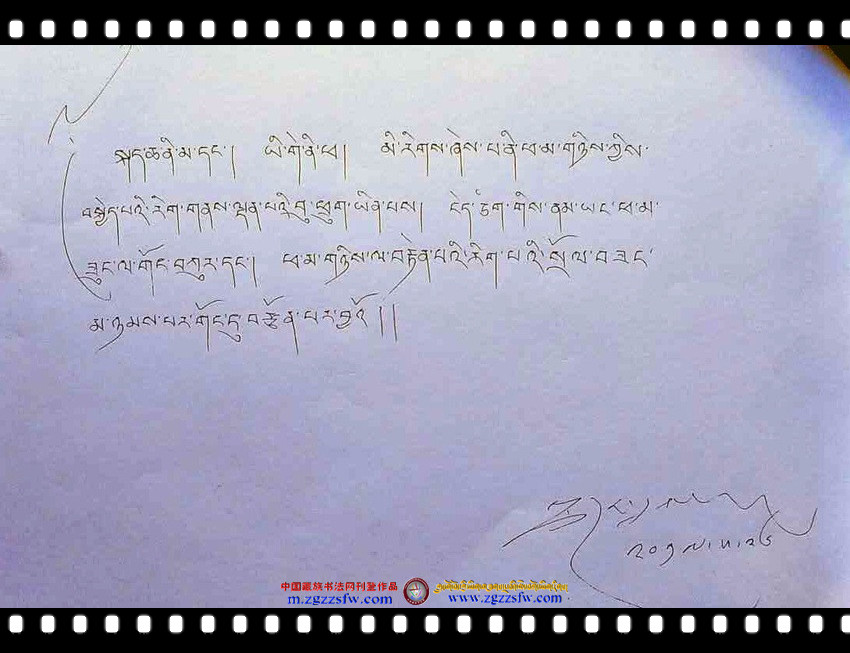 སྐད་ཆ་ནི་མ་དང་། ཡི་གེ་ནི་ཕ། མི་རིགས་ཞེས་པ་ནི་ཕ་མ་གཉིས་ཀྱིས་
བསྐྱེད་པའི་རིག་གནས་ལྡན་པའི་བུ་ཕྲུག་ཡིན་པས། ངེད་ཅག་གིས་ནམ་ཡང་ཕ་མ་
ཟུང་ལ་གོང་བཀུར་དང་། ཕ་མ་གཉིས་ལ་བརྟེན་པའི་རིག་པའི་སྲོལ་བཟང་
མ་ཉམས་པར་གོང་དུ་བརྩོན་པར་བྱའོ།།
中国藏族书法网刊登作品
m.zgzzsfw.com
www.zgzzsfw.com